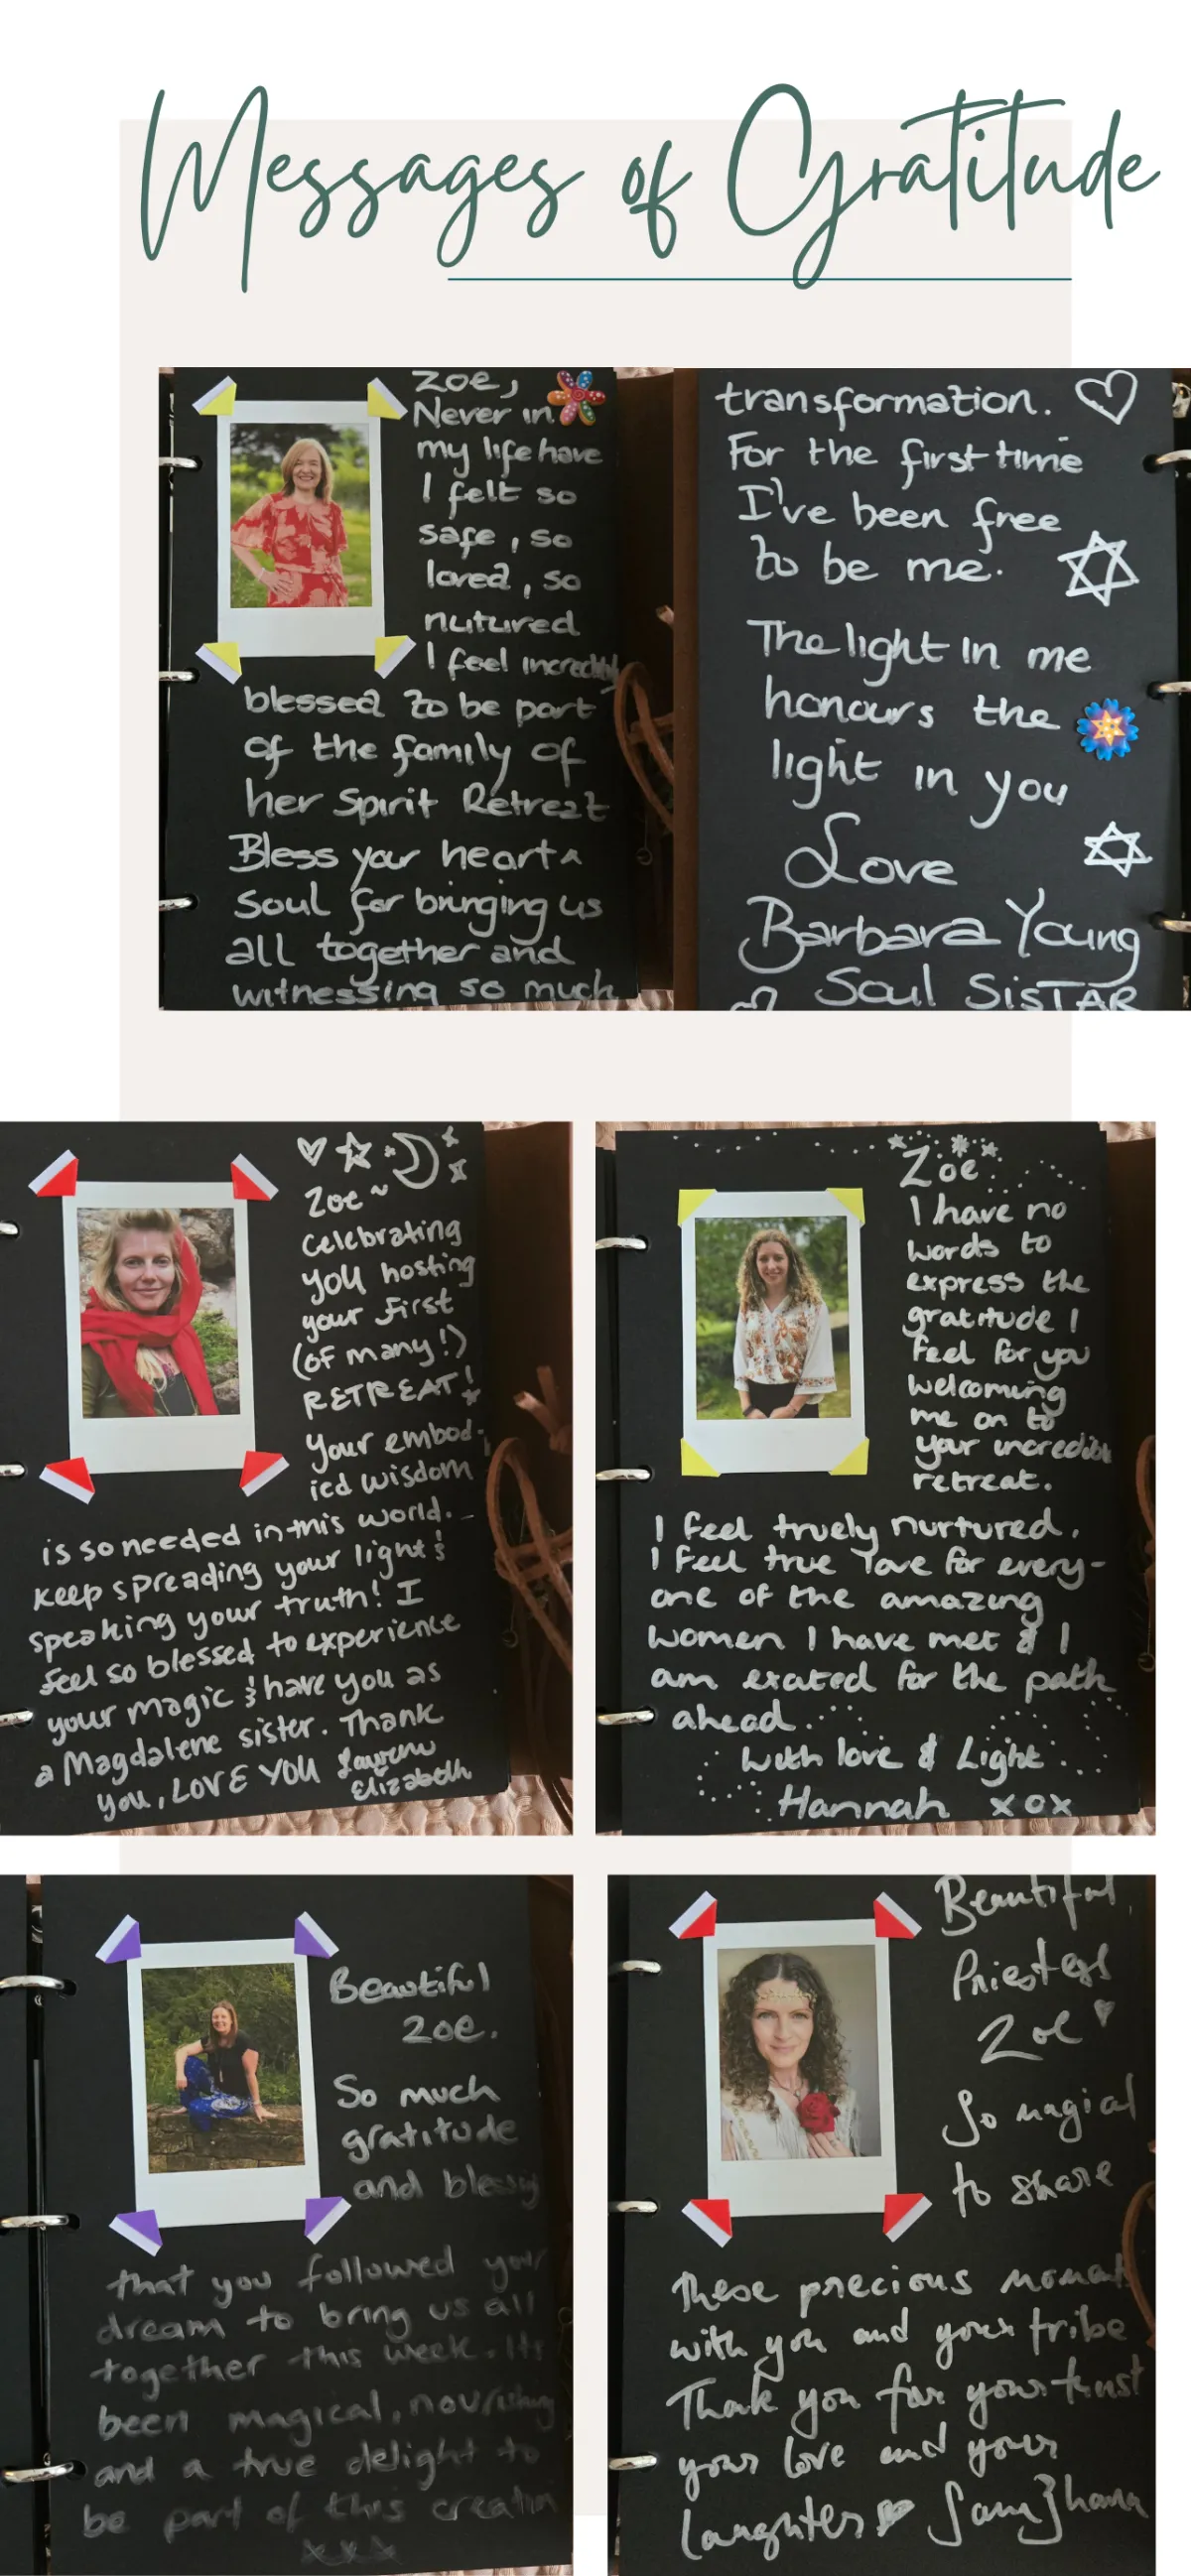 Messages of Gratitude
Zoe,
Never in
my life have
I felt so
safe, so
loved, so
nutured
I feel incredibly
blessed to be part
of the family of
her Spirit Retreat
Bless your heart &
Soul for bringing us
all together and
witnessing so much
transformation.
For the first time
I've been free
to be me.
The light in me
honours the
light in you
Love
Barbara Young
Soul SisTAR
Zoe ~
celebrating
you hosting
your first
(of many!)
RETREAT!
Your embod-
ied wisdom
is so needed in this world.
keep spreading your light &
speaking your truth! I
feel so blessed to experience
your magic & have you as
a Magdalene sister. Thank
you, LOVE YOU Lauren
Elizabeth
Zoe
I have no
words to
express the
gratitude I
feel for you
welcoming
me on to
your incredible
retreat.
I feel truely nurtured.
I feel true love for every-
one of the amazing
women I have met & I
am excited for the path
ahead.
With love & Light
Hannah xox
Beautiful
Zoe.
So much
gratitude
and blessing
that you followed your
dream to bring us all
together this week. Its
been magical, nourishing
and a true delight to
be part of this creation
xxx
Beautiful
Priestess
Zoe
So magical
to share
these precious moments
with you and your tribe
Thank you for your trust
your love and your
laughter